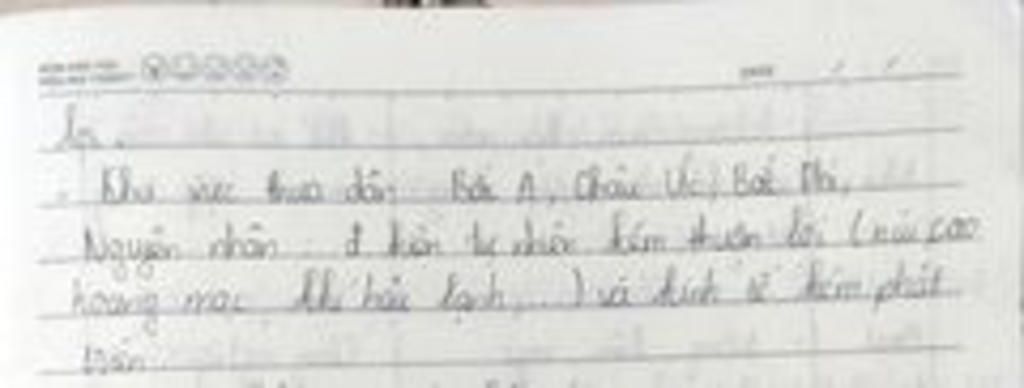 - Khu vực thưa dân: Bắc Á, Châu Úc, Bắc Phi,
Nguyên nhân: đ kiện tự nhiên kém thuận lợi (núi cao
hoang mạc khí hậu lạnh,...) và kinh tế kém phát
triển